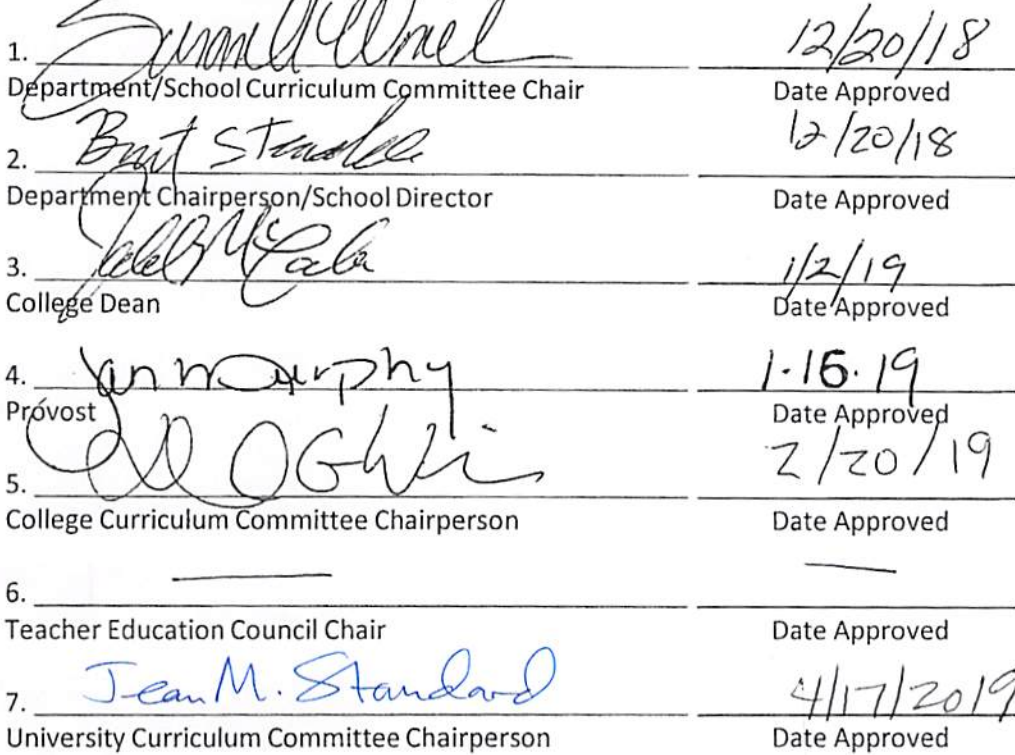 1. 12/20/18
Department/School Curriculum Committee Chair Date Approved
2. 12/20/18
Department Chairperson/School Director Date Approved
3. 1/2/19
College Dean Date Approved
4. Jan Murphy 1.16.19
Provost Date Approved
5. 2/20/19
College Curriculum Committee Chairperson Date Approved
6. — —
Teacher Education Council Chair Date Approved
7. Jean M. Standard 4/17/2019
University Curriculum Committee Chairperson Date Approved